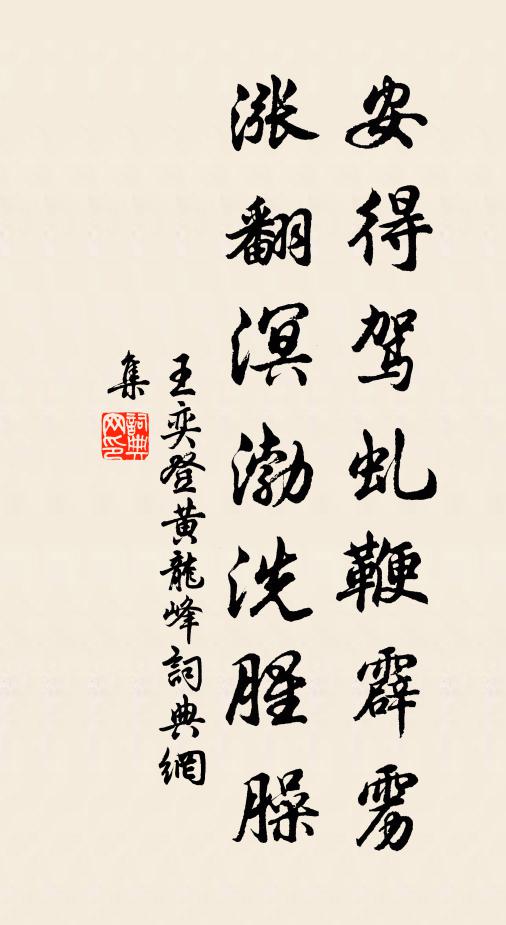 安得驾虬鞭霹雳
涨翻溟渤洗腥臊
王奕登黄龍峰詞典網
集
詞典
网印